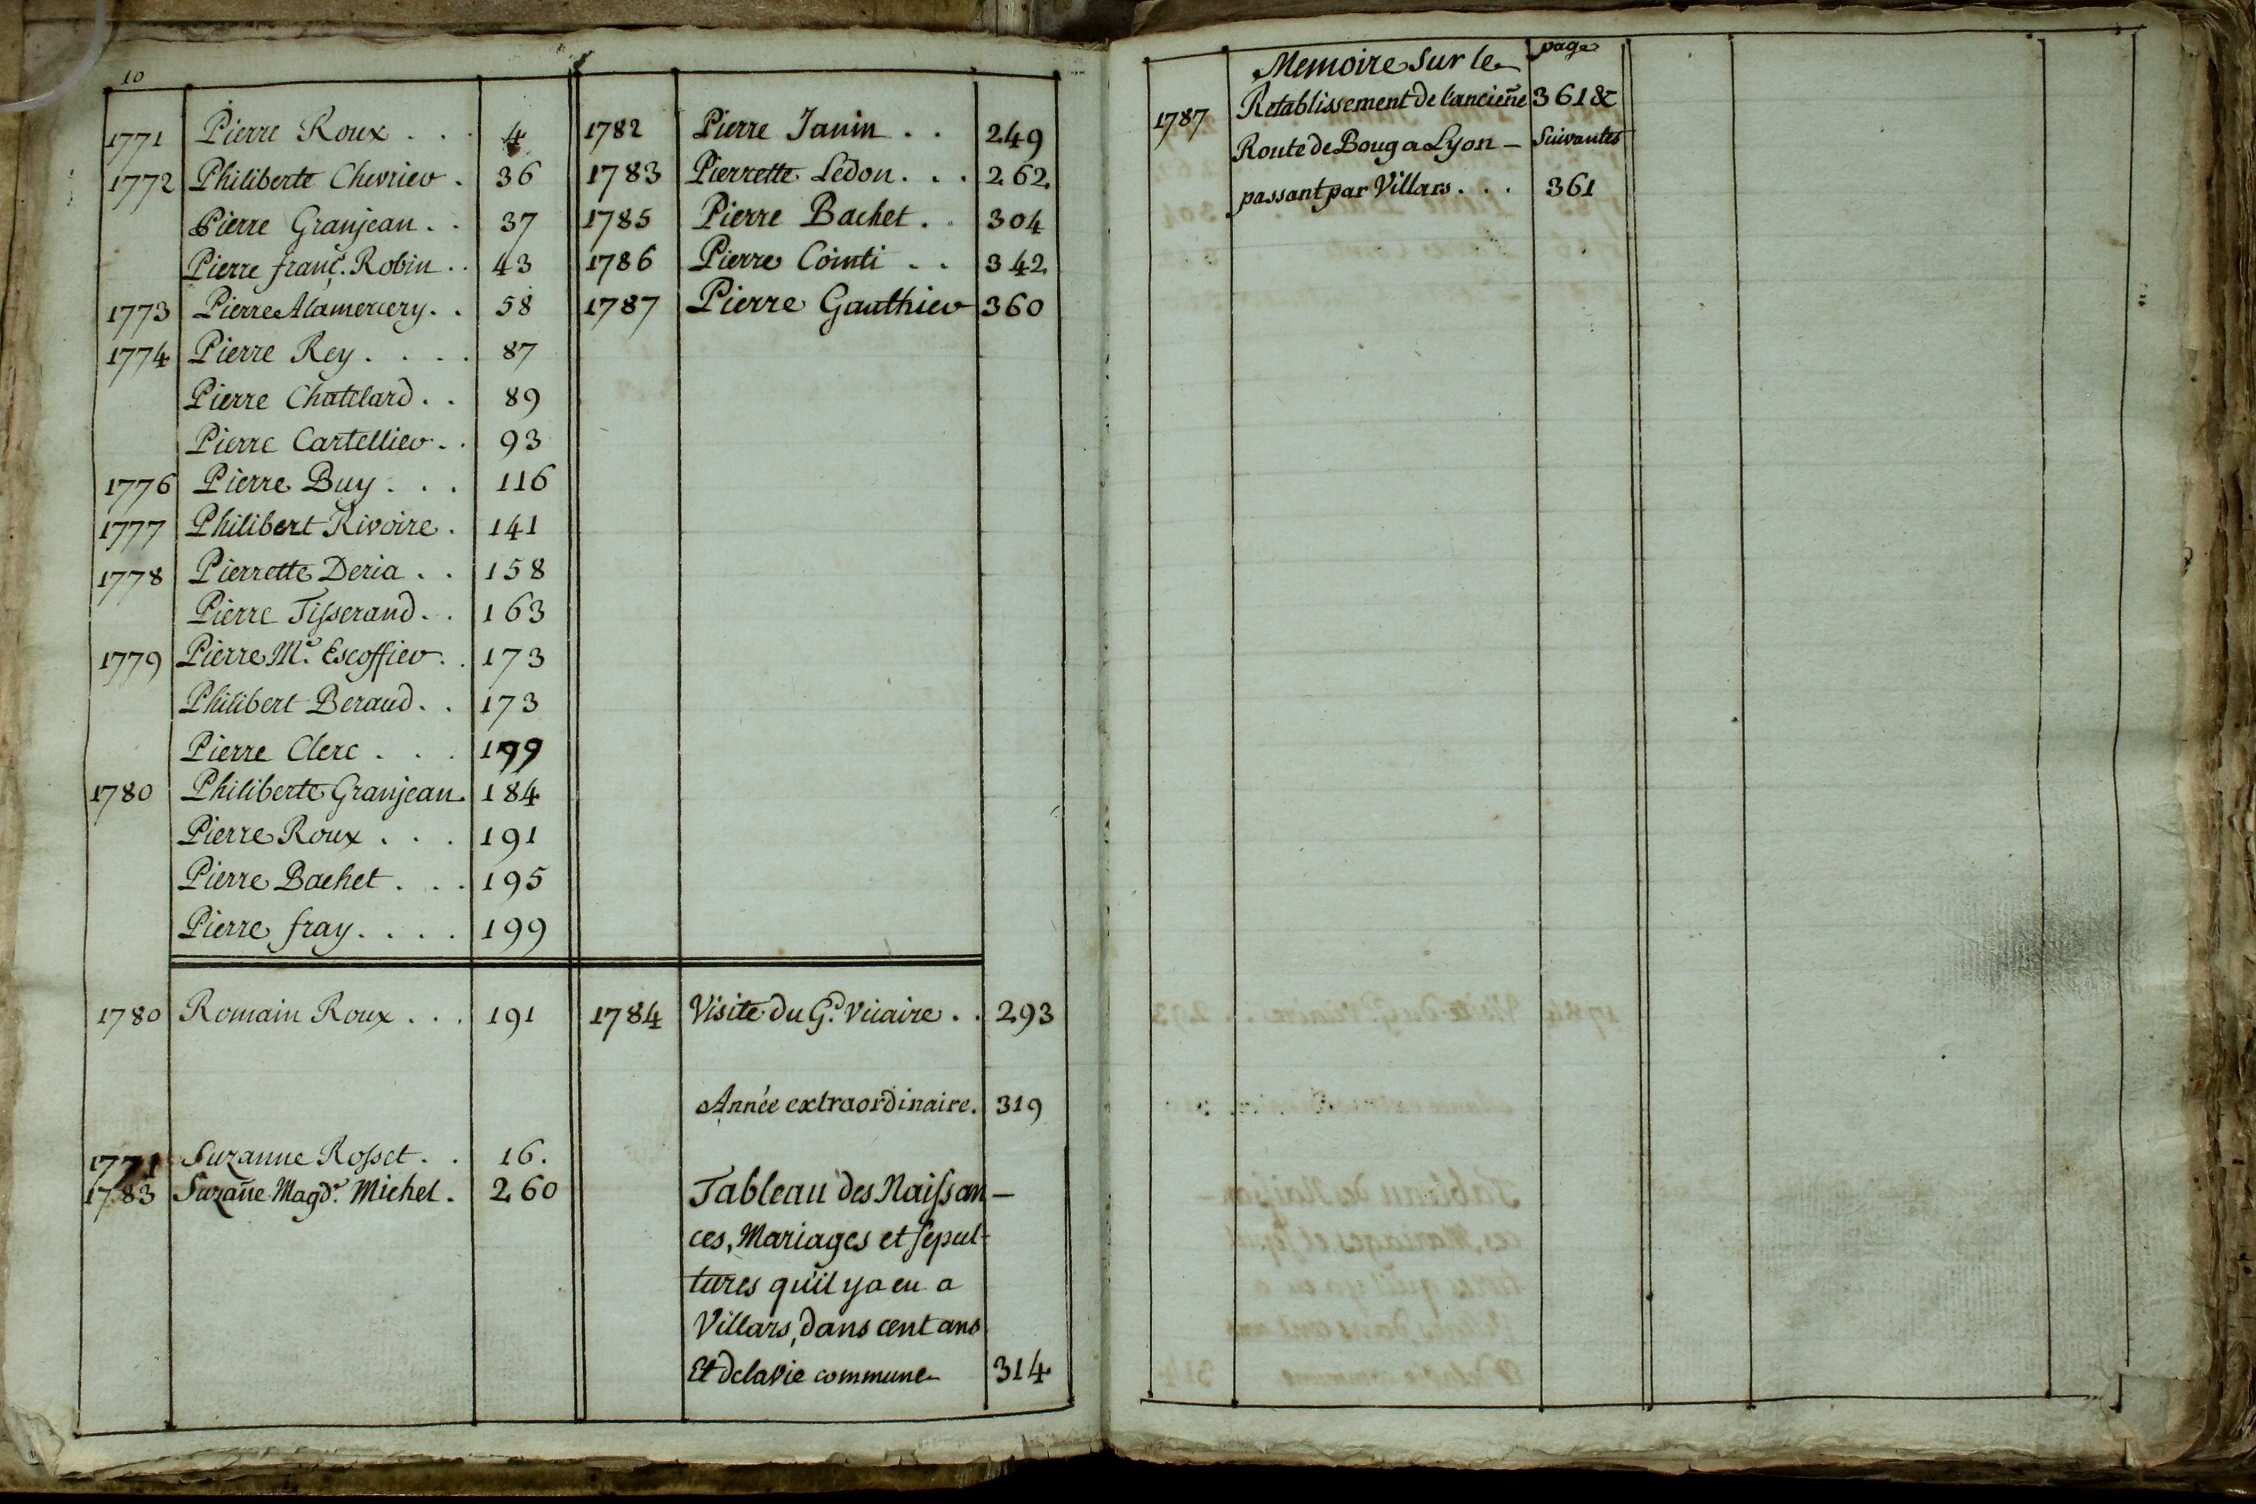 10
1771 Pierre Roux . . . 4
1772 Philiberte Chevrier . 36
Pierre Granjean . . 37
Pierre franç. Robin . . 43
1773 Pierre Alamercery . . 58
1774 Pierre Rey . . . . 87
Pierre Chatelard . . 89
Pierre Cartellier . . 93
1776 Pierre Buy . . . 116
1777 Philibert Rivoire . 141
1778 Pierrette Deria . . 158
Pierre Tisserand . . 163
1779 Pierre Me. Escoffier . . 173
Philibert Beraud . . 173
Pierre Clerc . . . 179
1780 Philiberte Granjean . 184
Pierre Roux . . . 191
Pierre Bachet . . . 195
Pierre fray . . . . 199
1780 Romain Roux . . . 191
1771 Suzanne Rosset . . 16.
1783 Suzañe Magde. Michel . 260
1782 Pierre Janin . . 249
1783 Pierrette Ledon . . . 262
1785 Pierre Bachet . . 304
1786 Pierre Cointi . . 342
1787 Pierre Gauthier 360
1784 Visite du Gd. Vicaire . . 293
Année extraordinaire . 319
Tableau des Naissan-
ces, Mariages et sepul-
tures qu'il y a eu a
Villars, dans cent ans
Et de la vie commune 314
page
Memoire sur le
1787 Retablissement de l'ancieñe 361 &
Route de Boug a Lyon - Suivantes
passant par Villars . . . 361